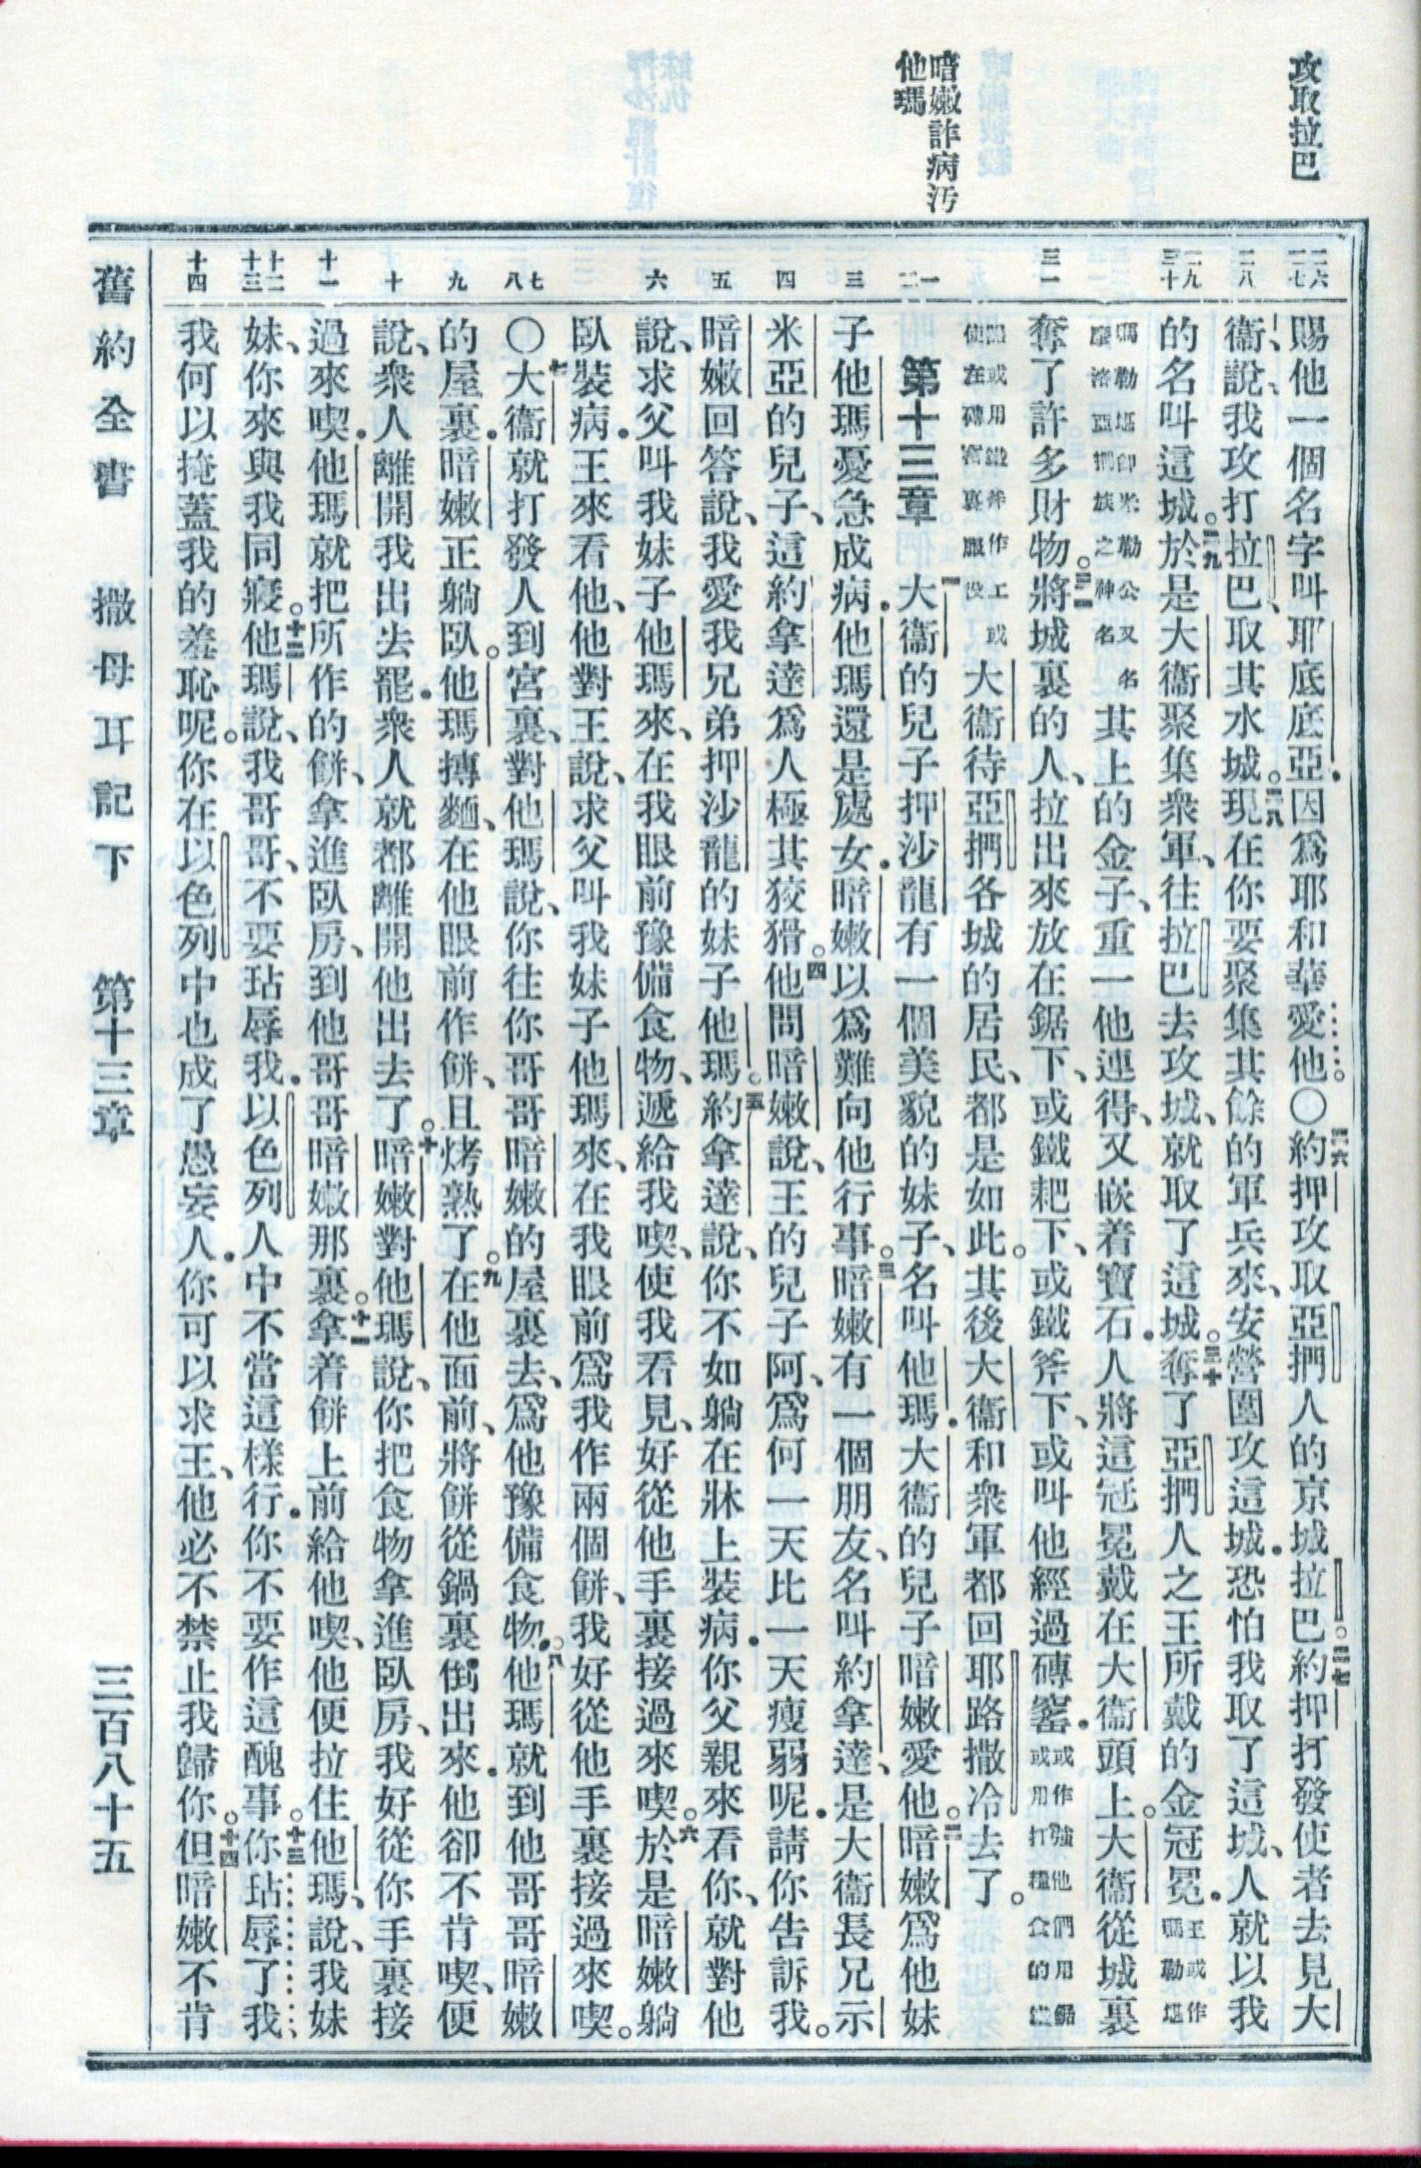 攻取拉巴
暗嫩詐病汚
他瑪
二六
二七
二八
二九
三十
三一
一
二
三
四
五
六
七
八
九
十
十一
十二
十三
十四
賜他一個名字叫耶底底亞．因爲耶和華愛他。〇二六約押攻取亞捫人的京城拉巴。二七約押打發使者去見大
衞、說、我攻打拉巴、取其水城。二八現在你要聚集其餘的軍兵來、安營圍攻這城．恐怕我取了這城、人就以我
的名叫這城。二九於是大衞聚集衆軍、往拉巴去攻城、就取了這城。三十奪了亞捫人之王所戴的金冠冕．王或作瑪勒堪
瑪勒堪卽米勒公又名摩洛亞捫族之神名其上的金子、重一他連得、又嵌着寶石．人將這冠冕戴在大衞頭上。大衞從城裏
奪了許多財物。三一將城裏的人、拉出來放在鋸下、或鐵耙下、或鐵斧下、或叫他經過磚窰．或作強他們用鋸或用打糧食的鐵
器或用鐵斧作工或使在磚窰裏服役大衞待亞捫各城的居民、都是如此。其後大衞和衆軍都回耶路撒冷去了。
第十三章 一大衞的兒子押沙龍有一個美貌的妹子、名叫他瑪．大衞的兒子暗嫩愛他。二暗嫩爲他妹
子他瑪憂急成病．他瑪還是處女．暗嫩以爲難向他行事。三暗嫩有一個朋友、名叫約拿達、是大衞長兄示
米亞的兒子、這約拿達爲人極其狡猾。四他問暗嫩說、王的兒子阿、爲何一天比一天瘦弱呢．請你告訴我。
暗嫩回答說、我愛我兄弟押沙龍的妹子他瑪。五約拿達說、你不如躺在牀上裝病．你父親來看你、就對他
說、求父叫我妹子他瑪來、在我眼前豫備食物、遞給我喫、使我看見、好從他手裏接過來喫。六於是暗嫩躺
臥裝病．王來看他、他對王說、求父叫我妹子他瑪來、在我眼前爲我作兩個餅、我好從他手裏接過來喫。
〇七大衞就打發人到宮裏、對他瑪說、你往你哥哥暗嫩的屋裏去、爲他豫備食物．。八他瑪就到他哥哥暗嫩
的屋裏．暗嫩正躺臥。他瑪摶麵、在他眼前作餅、且烤熟了。九在他面前、將餅從鍋裏倒出來．他卻不肯喫、便
說、衆人離開我出去罷．衆人就都離開他出去了。十暗嫩對他瑪說、你把食物拿進臥房、我好從你手裏接
過來喫．他瑪就把所作的餅、拿進臥房、到他哥哥暗嫩那裏。十一拿着餅上前給他喫、他便拉住他瑪、說、我妹
妹、你來與我同寢。十二他瑪說、我哥哥、不要玷辱我．以色列人中不當這樣行．你不要作這醜事。十三你玷辱了我、
我何以掩蓋我的羞恥呢。你在以色列中也成了愚妄人．你可以求王、他必不禁止我歸你。十四但暗嫩不肯
舊約全書 撒母耳記下 第十三章 三百八十五